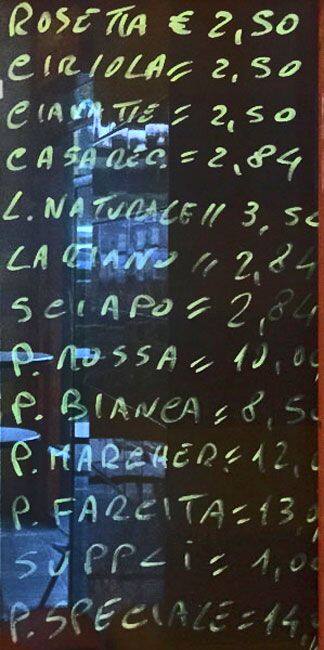 ROSETTA € 2,50
CIRIOLA = 2,50
CIABATTE = 2,50
CASAREC. = 2,84
L. NATURALE " 3,50
LARIANO " 2,84
SCIAPO = 2,84
P. ROSSA = 10,00
P. BIANCA = 8,50
P. MARGHER = 12,
P. FARCITA = 13,
SUPPLI = 1,00
P. SPECIALE = 14,